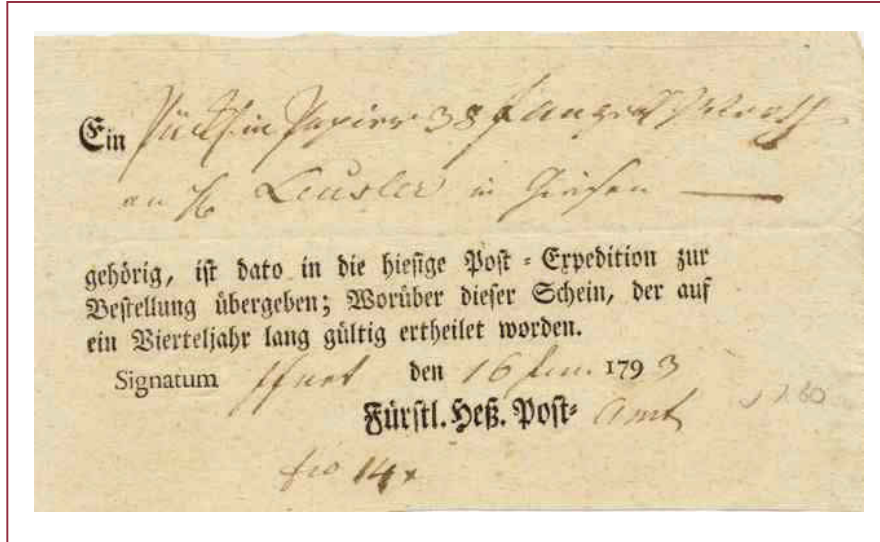 Ein Päckl. in Papier 38 f angebl. Werth
an H. Leusler in Giesen
gehörig, ist dato in die hiesige Post-Expedition zur
Bestellung übergeben; Worüber dieser Schein, der auf
ein Vierteljahr lang gültig ertheilet worden.
Signatum ffurt den 16 Jan. 1793
Fürstl. Heß. Post-Amt
fro 14 x